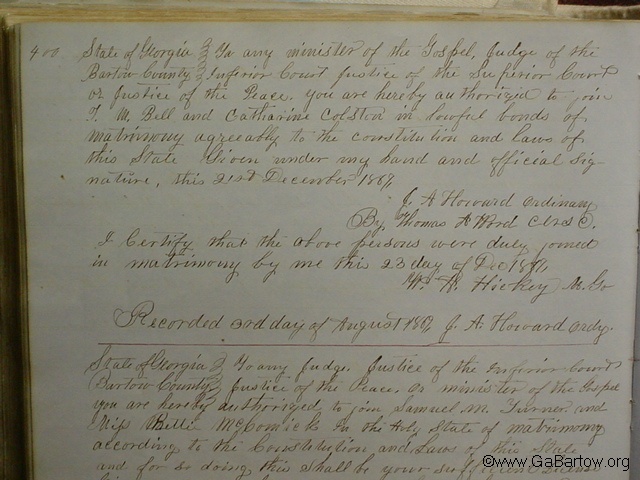 400 State of Georgia To any minister of the Gospel, Judge of the
Bartow County Inferior Court Justice of the Superior Court
or Justice of the Peace. you are hereby authorized to join
M. Bell and Catharine in lawful bonds of
matrimony agreeably to the constitution and laws of
this State Given under my hand and official Sig-
nature, this 21st December 186
J. A Howard Ordinary
By Thomas A Word C.S.C.
I Certify that the above persons were duly joined
in matrimony by me this 23 day of Dec
W. Hickey M. Go
Recorded 3rd day of August 186 J. A. Howard Ordy.
State of Georgia To any Judge, Justice of the Inferior Court
Bartow County Justice of the Peace, or minister of the Gospel
you are hereby authorized to join Samuel M. Turner and
Miss McCormick In the Holy State of matrimony
according to the Constitution and Laws of this State
and for so doing this shall be your sufficient License
©www.GaBartow.org